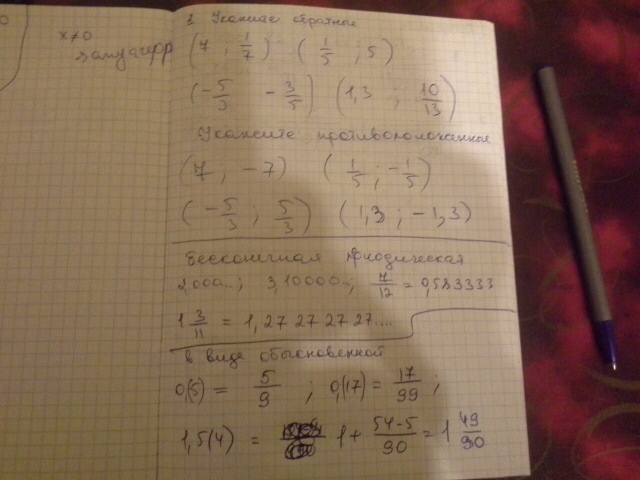 x≠0
1. Укажите обратные
(7 ; 1/7) (1/5 ; 5)
(-5/3 -3/5) (1,3 ; 10/13)
Укажите противоположенные
(7 ; -7) (1/5 ; -1/5)
(-5/3 ; 5/3) (1,3 ; -1,3)
Бесконечная приодическая
2,000...; 3,10000..; 7/12 = 0,583333
1 3/11 = 1,27 27 27 27....
в виде обыкновенной
0,(5) = 5/9 ; 0,(17) = 17/99 ;
1,5(4) = 1 + 54-5/90 = 1 49/90